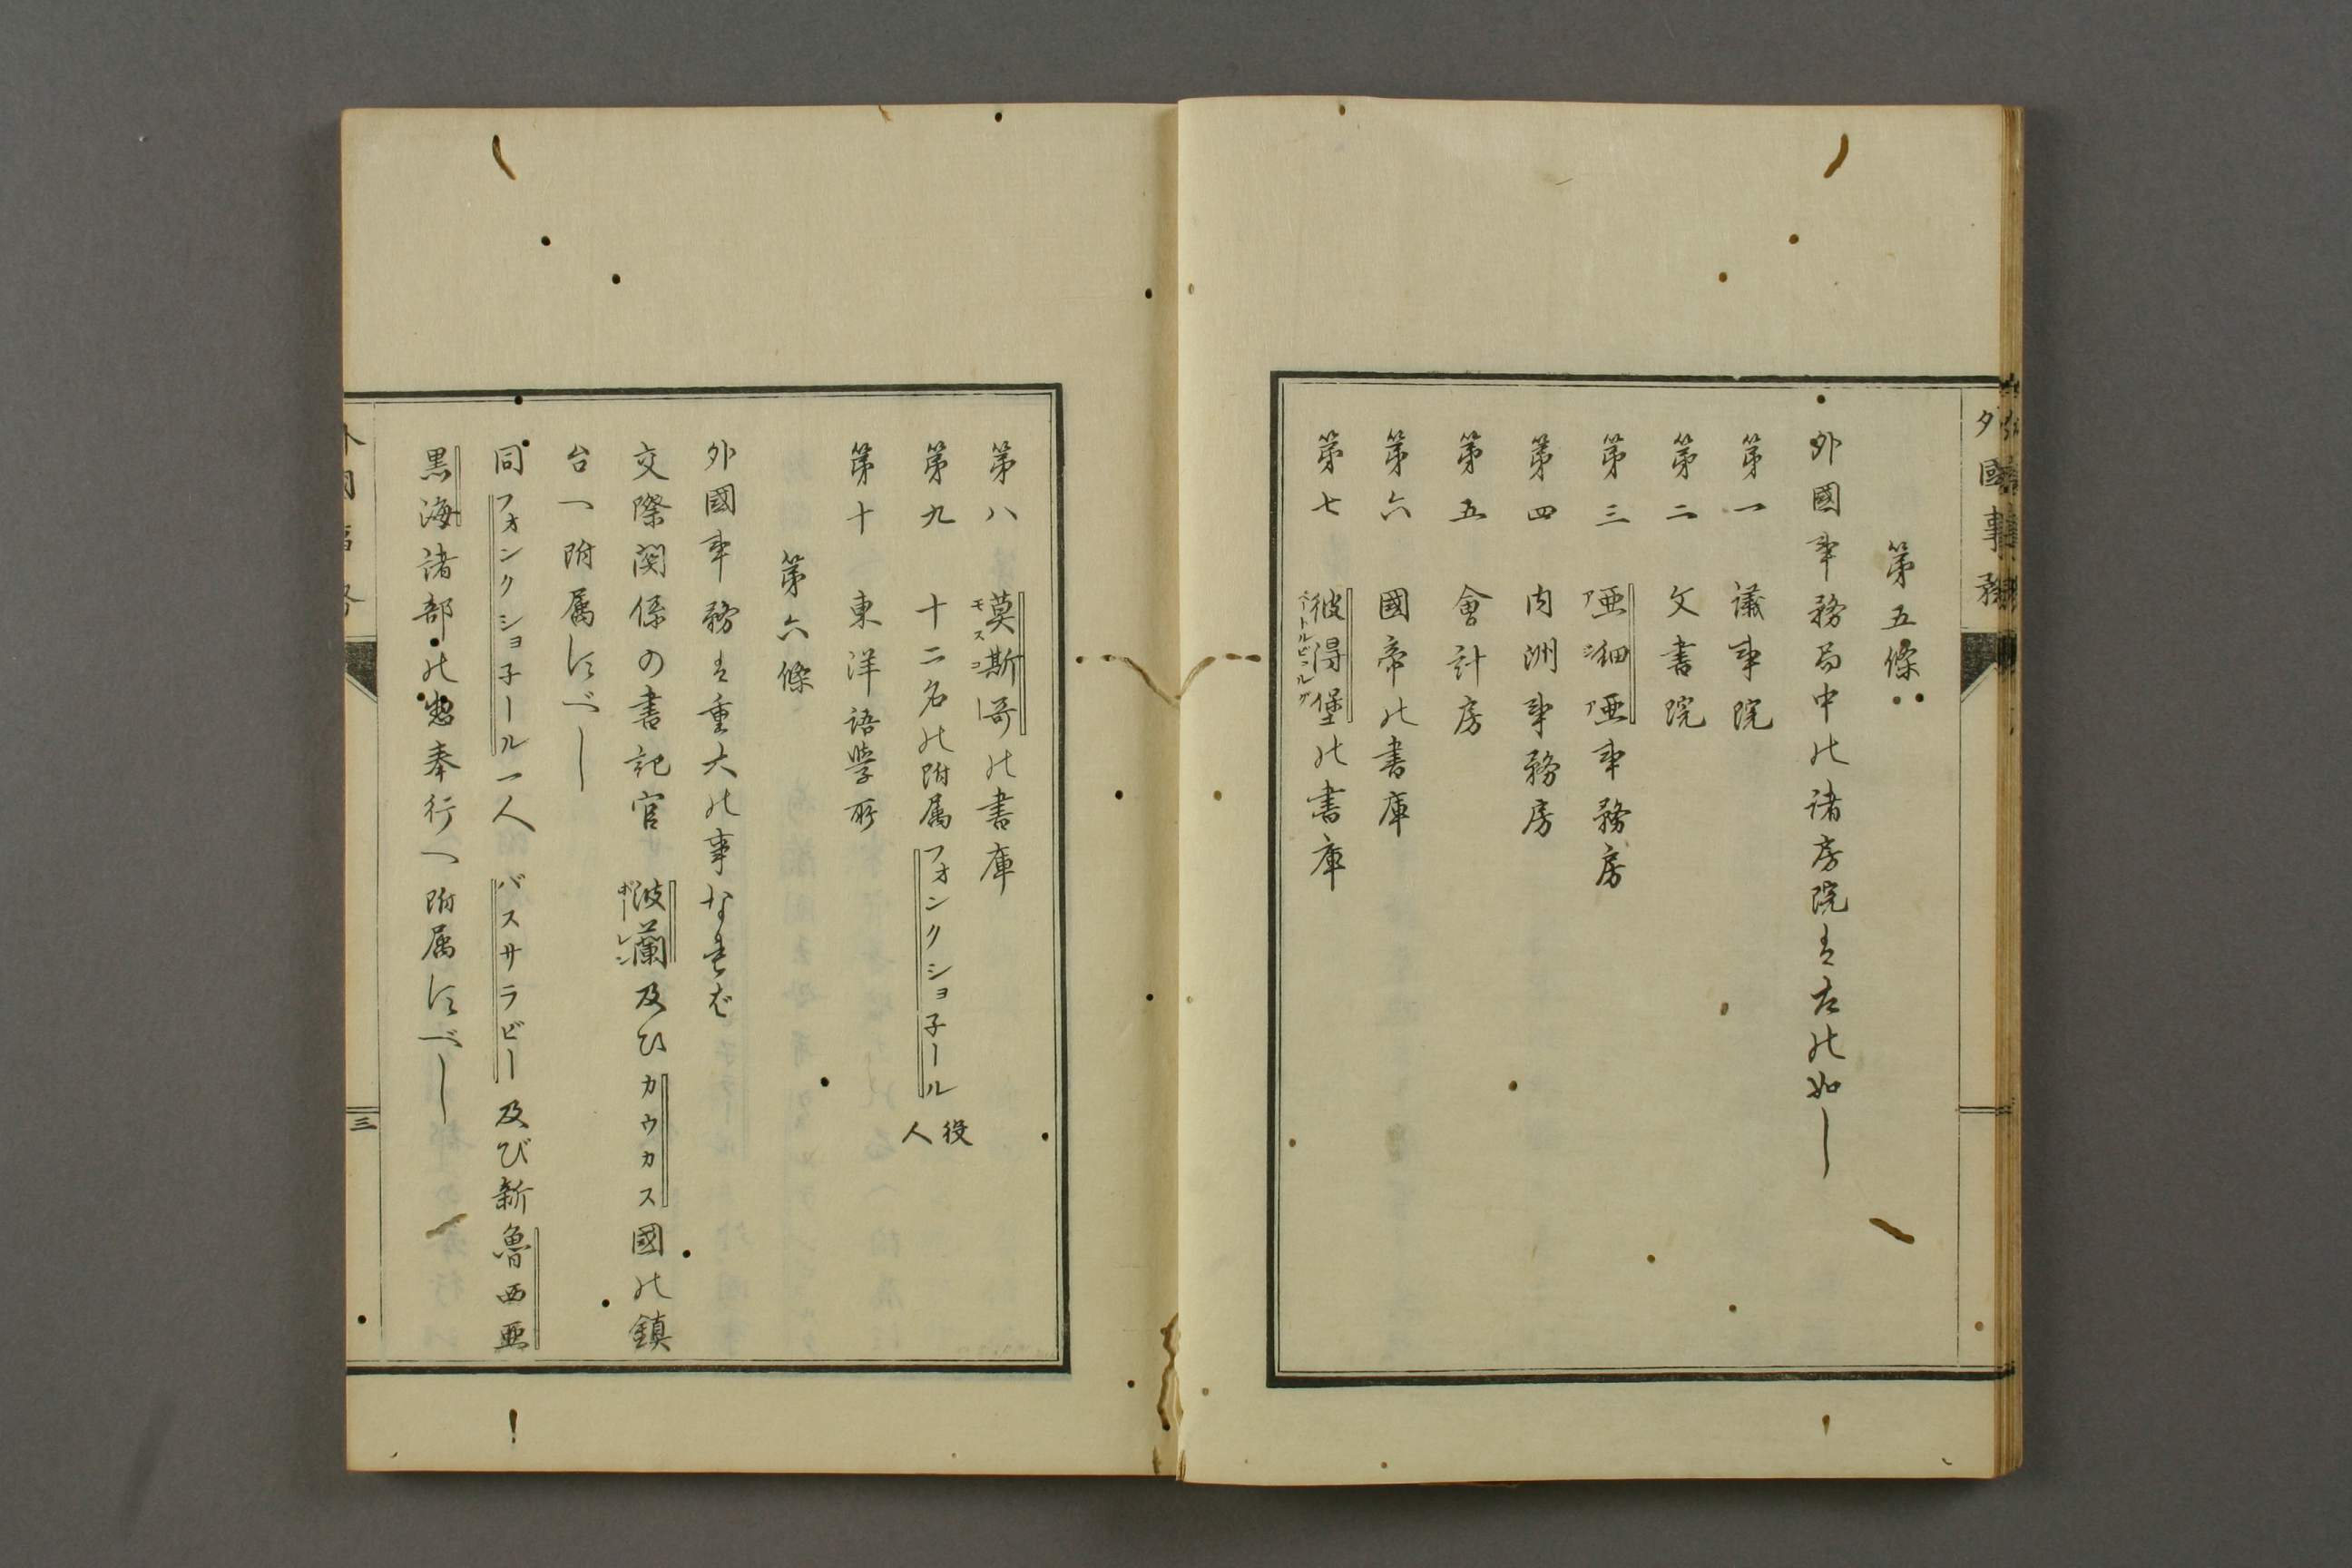 第五條
外國事務局中の諸房院は左の如し
第一 議事院
第二 文書院
第三 亜細亜事務房
ア シ ア
第四 内洲事務房
第五 會計房
第六 國帝の書庫
第七 彼得堡の書庫
ペートルビュルグ
外國事務
第八 莫斯哥の書庫
モスコー
第九 十二名の附属フォンクショ子ール 役人
第十 東洋語學所
第六條
外國事務は重大の事なれば
交際関係の書記官は波蘭及ひカウカス國の鎮
ポーレン
台へ附属すべし
同フォンクショ子ール一人 バスサラビー及び新魯西亜
黒海諸部の惣奉行へ附属すべし
三